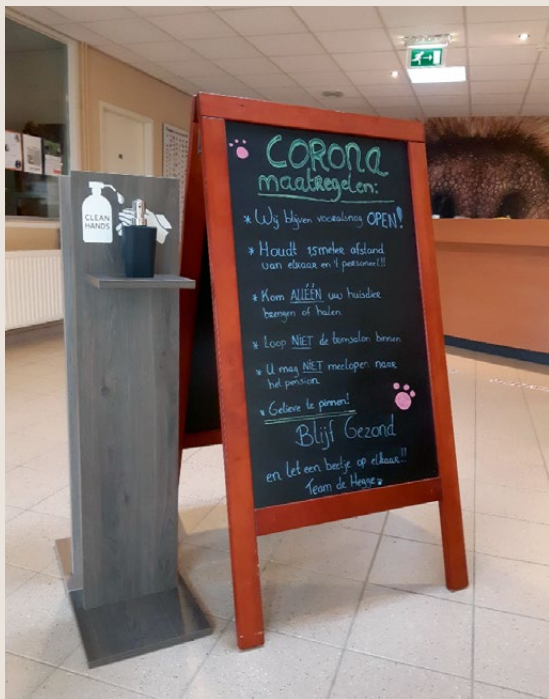 CLEAN
HANDS
CORONA
maatregelen:
* Wij blijven vooralsnog OPEN!
* Houdt 1.5 meter afstand
van elkaar en 't personeel!!
* Kom ALLÉÉN uw huisdier
brengen of halen
* Loop NIET de trimsalon binnen
* U mag NIET meelopen naar
het pension
* Gelieve te pinnen!
Blijf Gezond
en let een beetje op elkaar!!
Team de Hegge